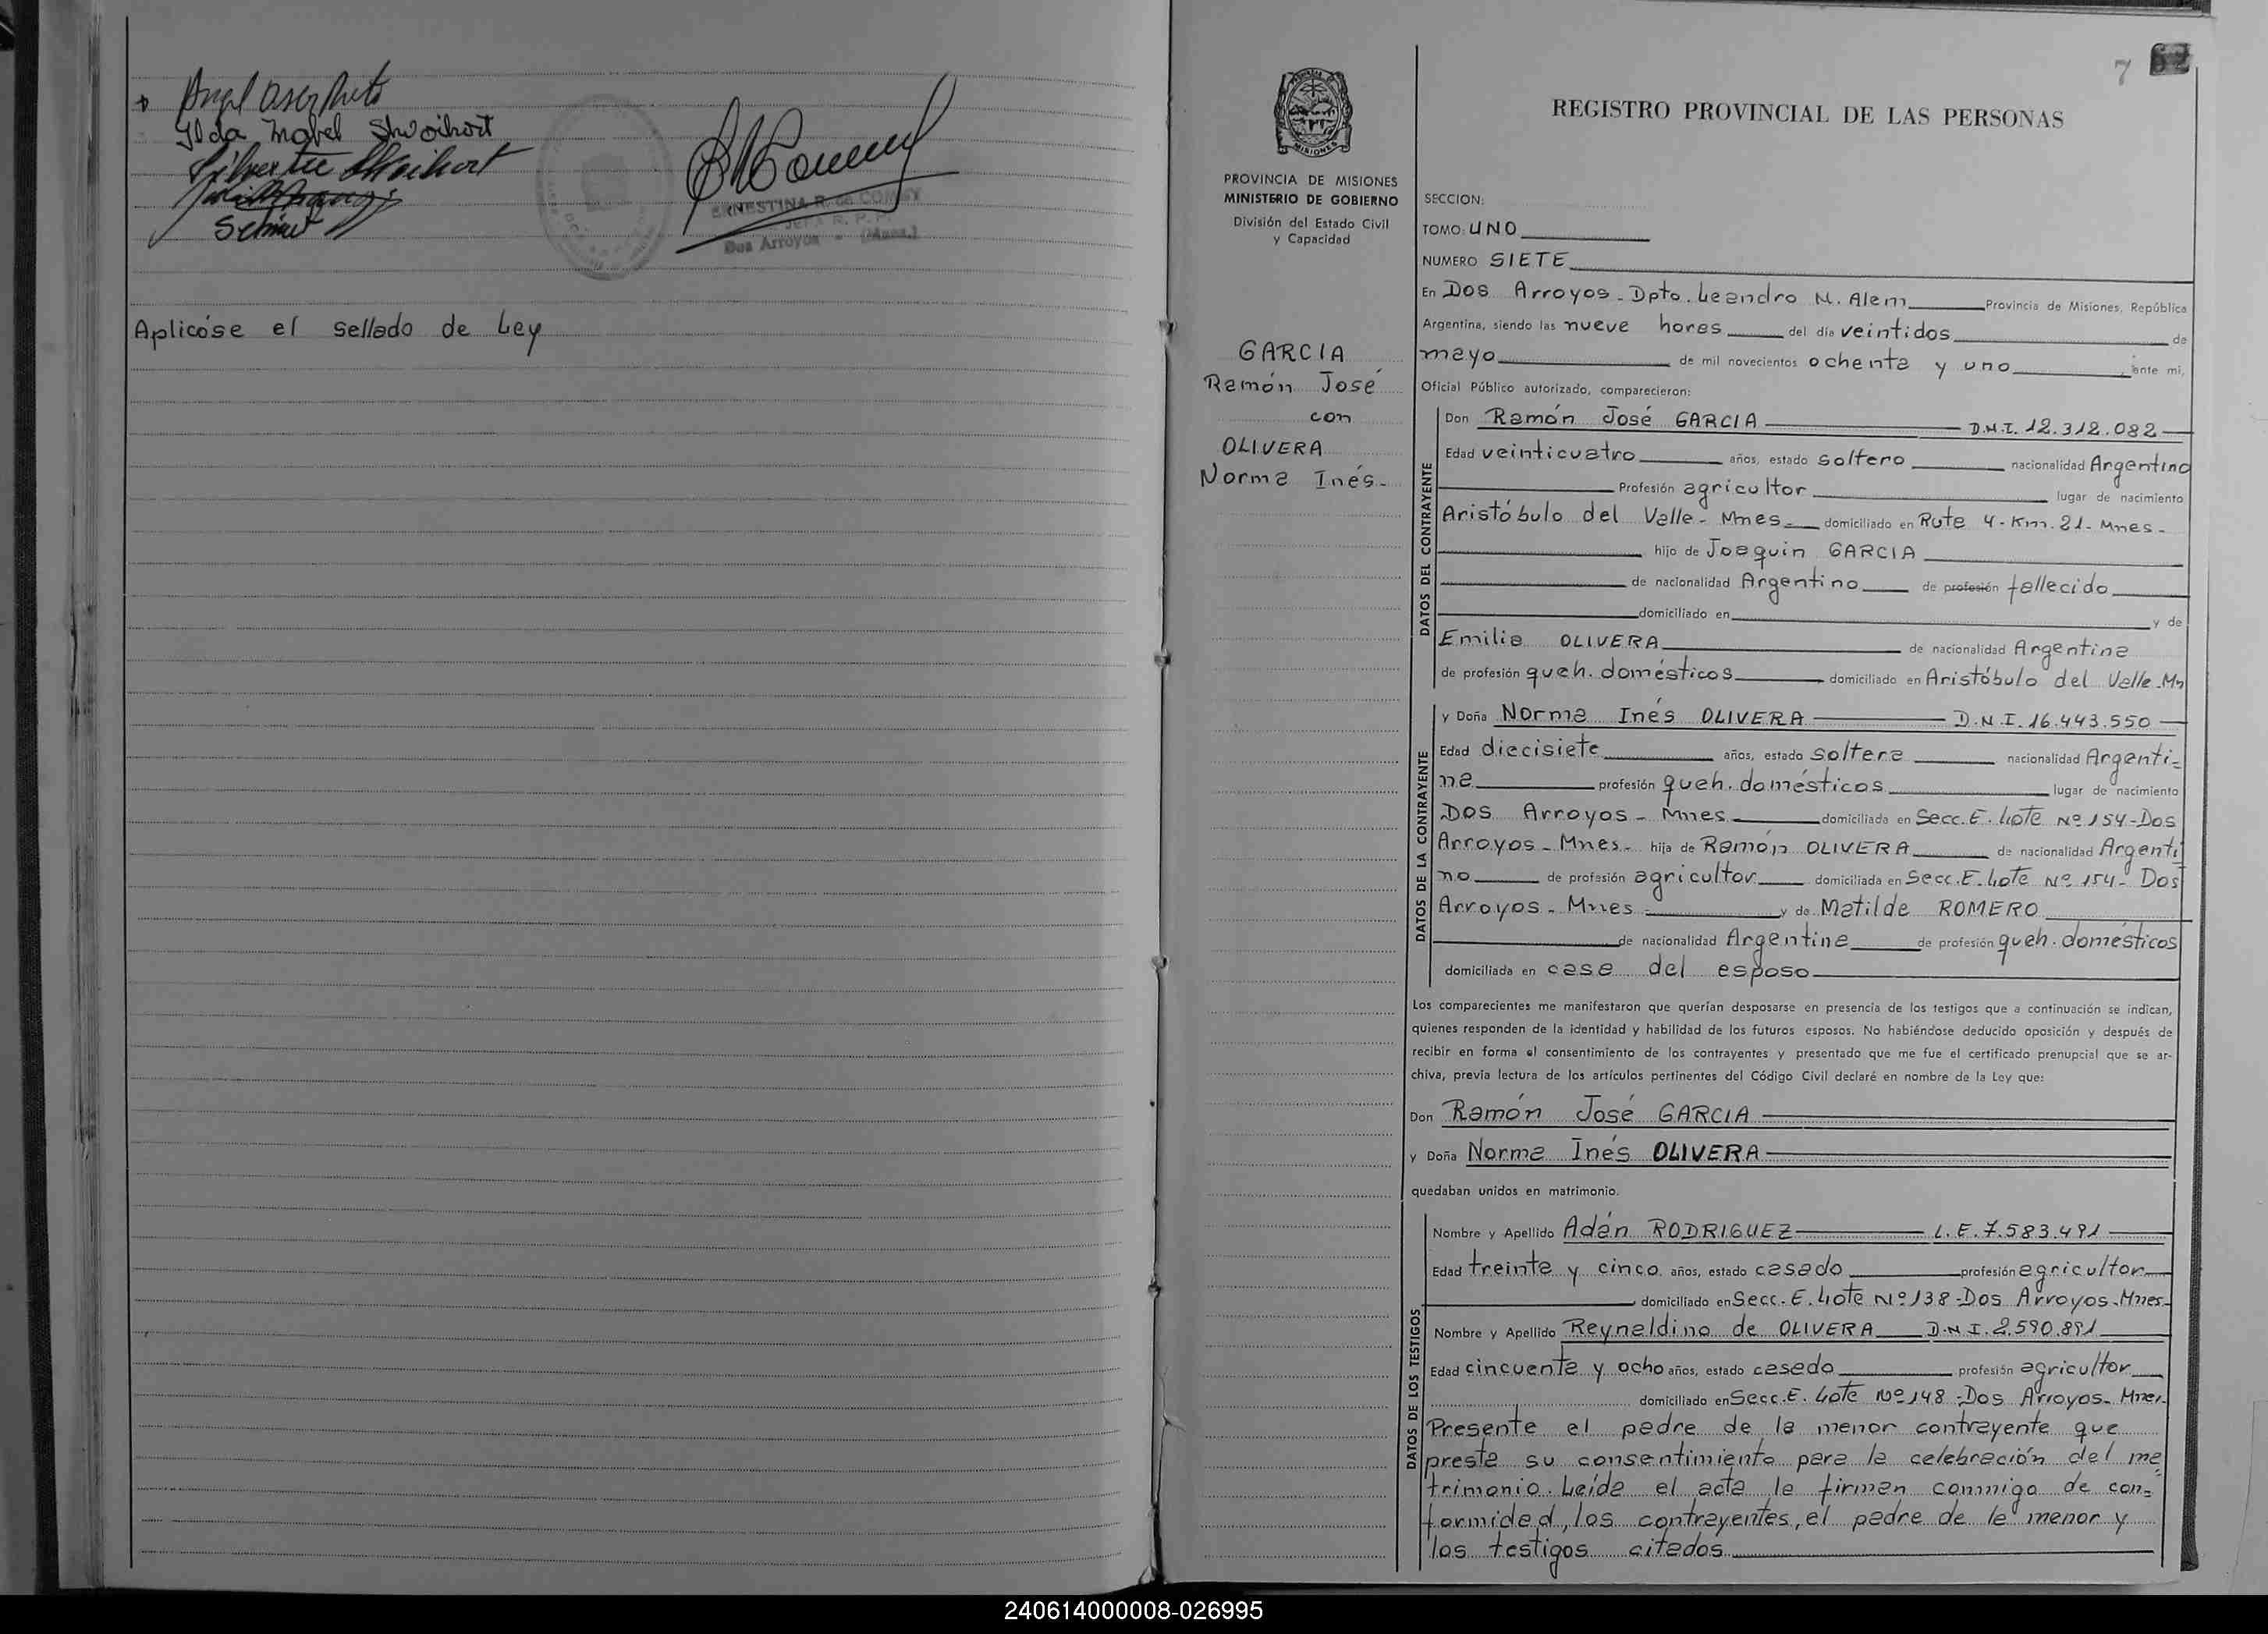 Angel
Ilda Mabel Shwoihort
Silvertre Shwihort
ERNESTINA R. de
JEFA R. P. P.
Dos Arroyos - (Mnes.)
Aplicóse el sellado de Ley
7
REGISTRO PROVINCIAL DE LAS PERSONAS
MISIONES
PROVINCIA DE MISIONES
MINISTERIO DE GOBIERNO
División del Estado Civil
y Capacidad
GARCIA
Ramón José
con
OLIVERA
Norma Inés-
SECCION:
TOMO: UNO
NUMERO SIETE
En Dos Arroyos - Dpto. Leandro N. Alem Provincia de Misiones, República
Argentina, siendo las nueve horas del día veintidos de
mayo de mil novecientos ochenta y uno ante mi,
Oficial Público autorizado, comparecieron:
DATOS DEL CONTRAYENTE
Don Ramón José GARCIA D.N.I. 12.312.082
Edad veinticuatro años, estado soltero nacionalidad Argentino
Profesión agricultor lugar de nacimiento
Aristóbulo del Valle - Mnes. domiciliado en Ruta 4 - Km. 21 - Mnes -
hijo de Joaquin GARCIA
de nacionalidad Argentino de profesión fallecido
domiciliado en y de
Emilia OLIVERA de nacionalidad Argentina
de profesión queh. domésticos domiciliado en Aristóbulo del Valle - Mn
DATOS DE LA CONTRAYENTE
y Doña Norma Inés OLIVERA D.N.I. 16.443.550
Edad diecisiete años, estado soltera nacionalidad Argenti-
na profesión queh. domésticos lugar de nacimiento
Dos Arroyos - Mnes domiciliada en Secc. E. Lote Nº 154 - Dos
Arroyos - Mnes - hija de Ramón OLIVERA de nacionalidad Argenti
no de profesión agricultor domiciliada en Secc. E. Lote Nº 154 - Dos
Arroyos - Mnes - y de Matilde ROMERO
de nacionalidad Argentina de profesión queh. domésticos
domiciliada en casa del esposo
Los comparecientes me manifestaron que querían desposarse en presencia de los testigos que a continuación se indican,
quienes responden de la identidad y habilidad de los futuros esposos. No habiéndose deducido oposición y después de
recibir en forma el consentimiento de los contrayentes y presentado que me fue el certificado prenupcial que se ar-
chiva, previa lectura de los artículos pertinentes del Código Civil declaré en nombre de la Ley que:
Don Ramón José GARCIA
y Doña Norma Inés OLIVERA
quedaban unidos en matrimonio.
DATOS DE LOS TESTIGOS
Nombre y Apellido Adán RODRIGUEZ L.E. 7.583.491
Edad treinta y cinco años, estado casado profesión agricultor
domiciliado en Secc. E. Lote Nº 138 - Dos Arroyos - Mnes -
Nombre y Apellido Reynaldino de OLIVERA D.N.I. 2.590.891
Edad cincuenta y ocho años, estado casado profesión agricultor
domiciliado en Secc. E. Lote Nº 148 - Dos Arroyos - Mnes -
Presente el padre de la menor contrayente que
presta su consentimiento para la celebración del ma
trimonio. Leída el acta la firman conmigo de con=
formidad, los contrayentes, el padre de la menor y
los testigos citados
240614000008-026995